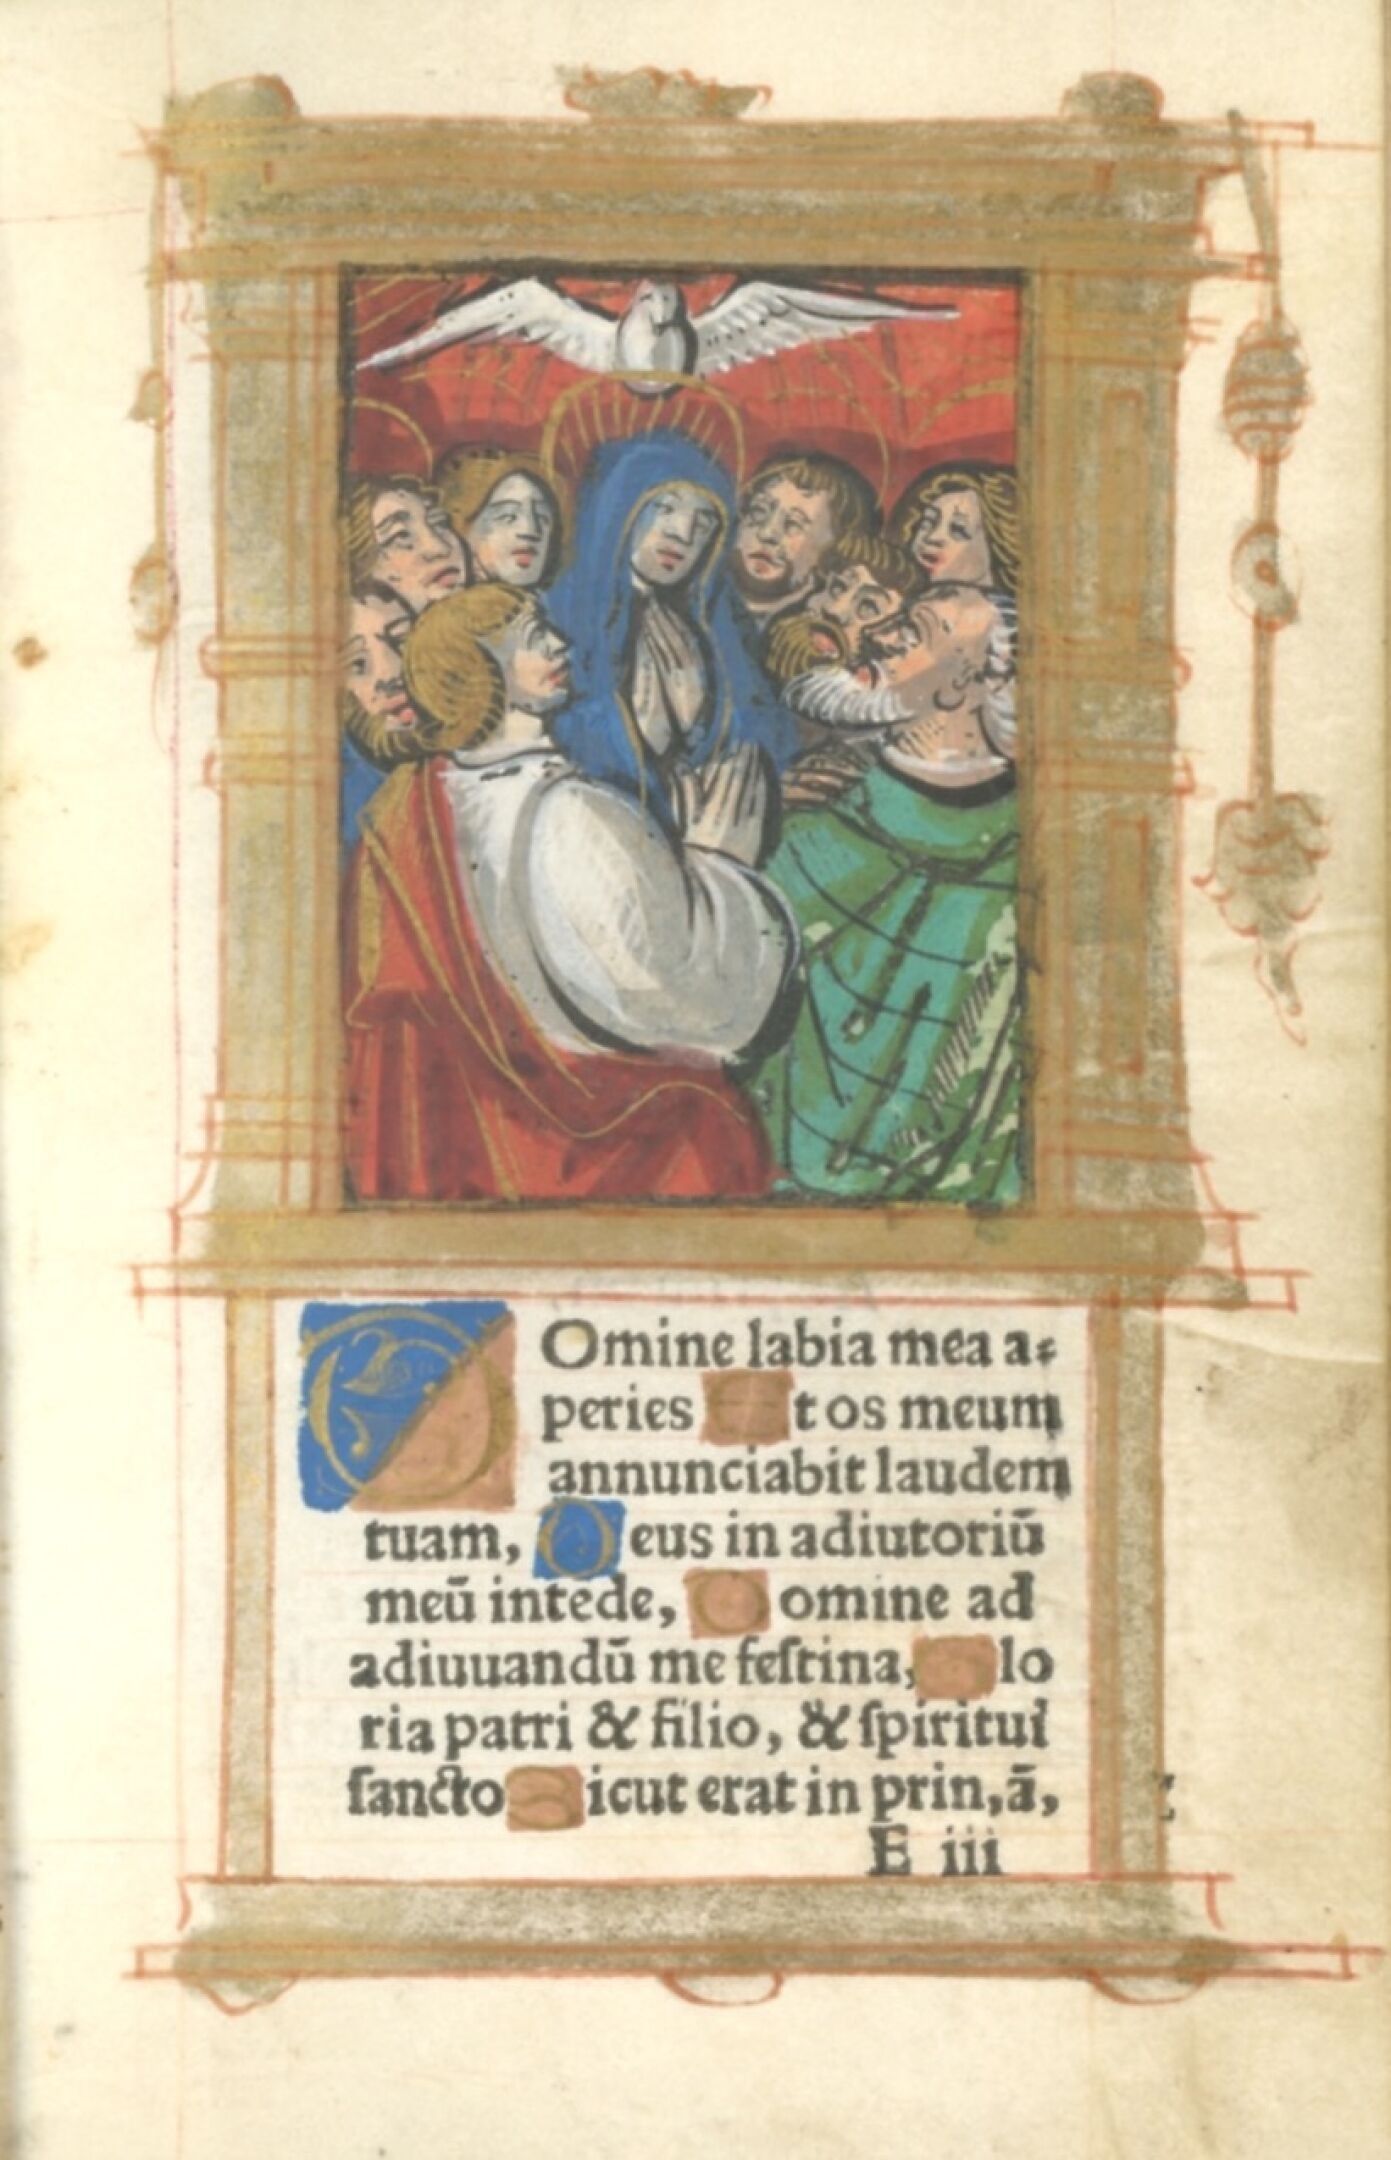 DOmine labia mea a⸗
peries Et os meum
annunciabit laudem
tuam, Deus in adiutoriū
meū intēde, Domine ad
adiuuandū me feſtina, Glo
ria patri & filio, & ſpiritui
ſancto Sicut erat in prin, ā,
E iii